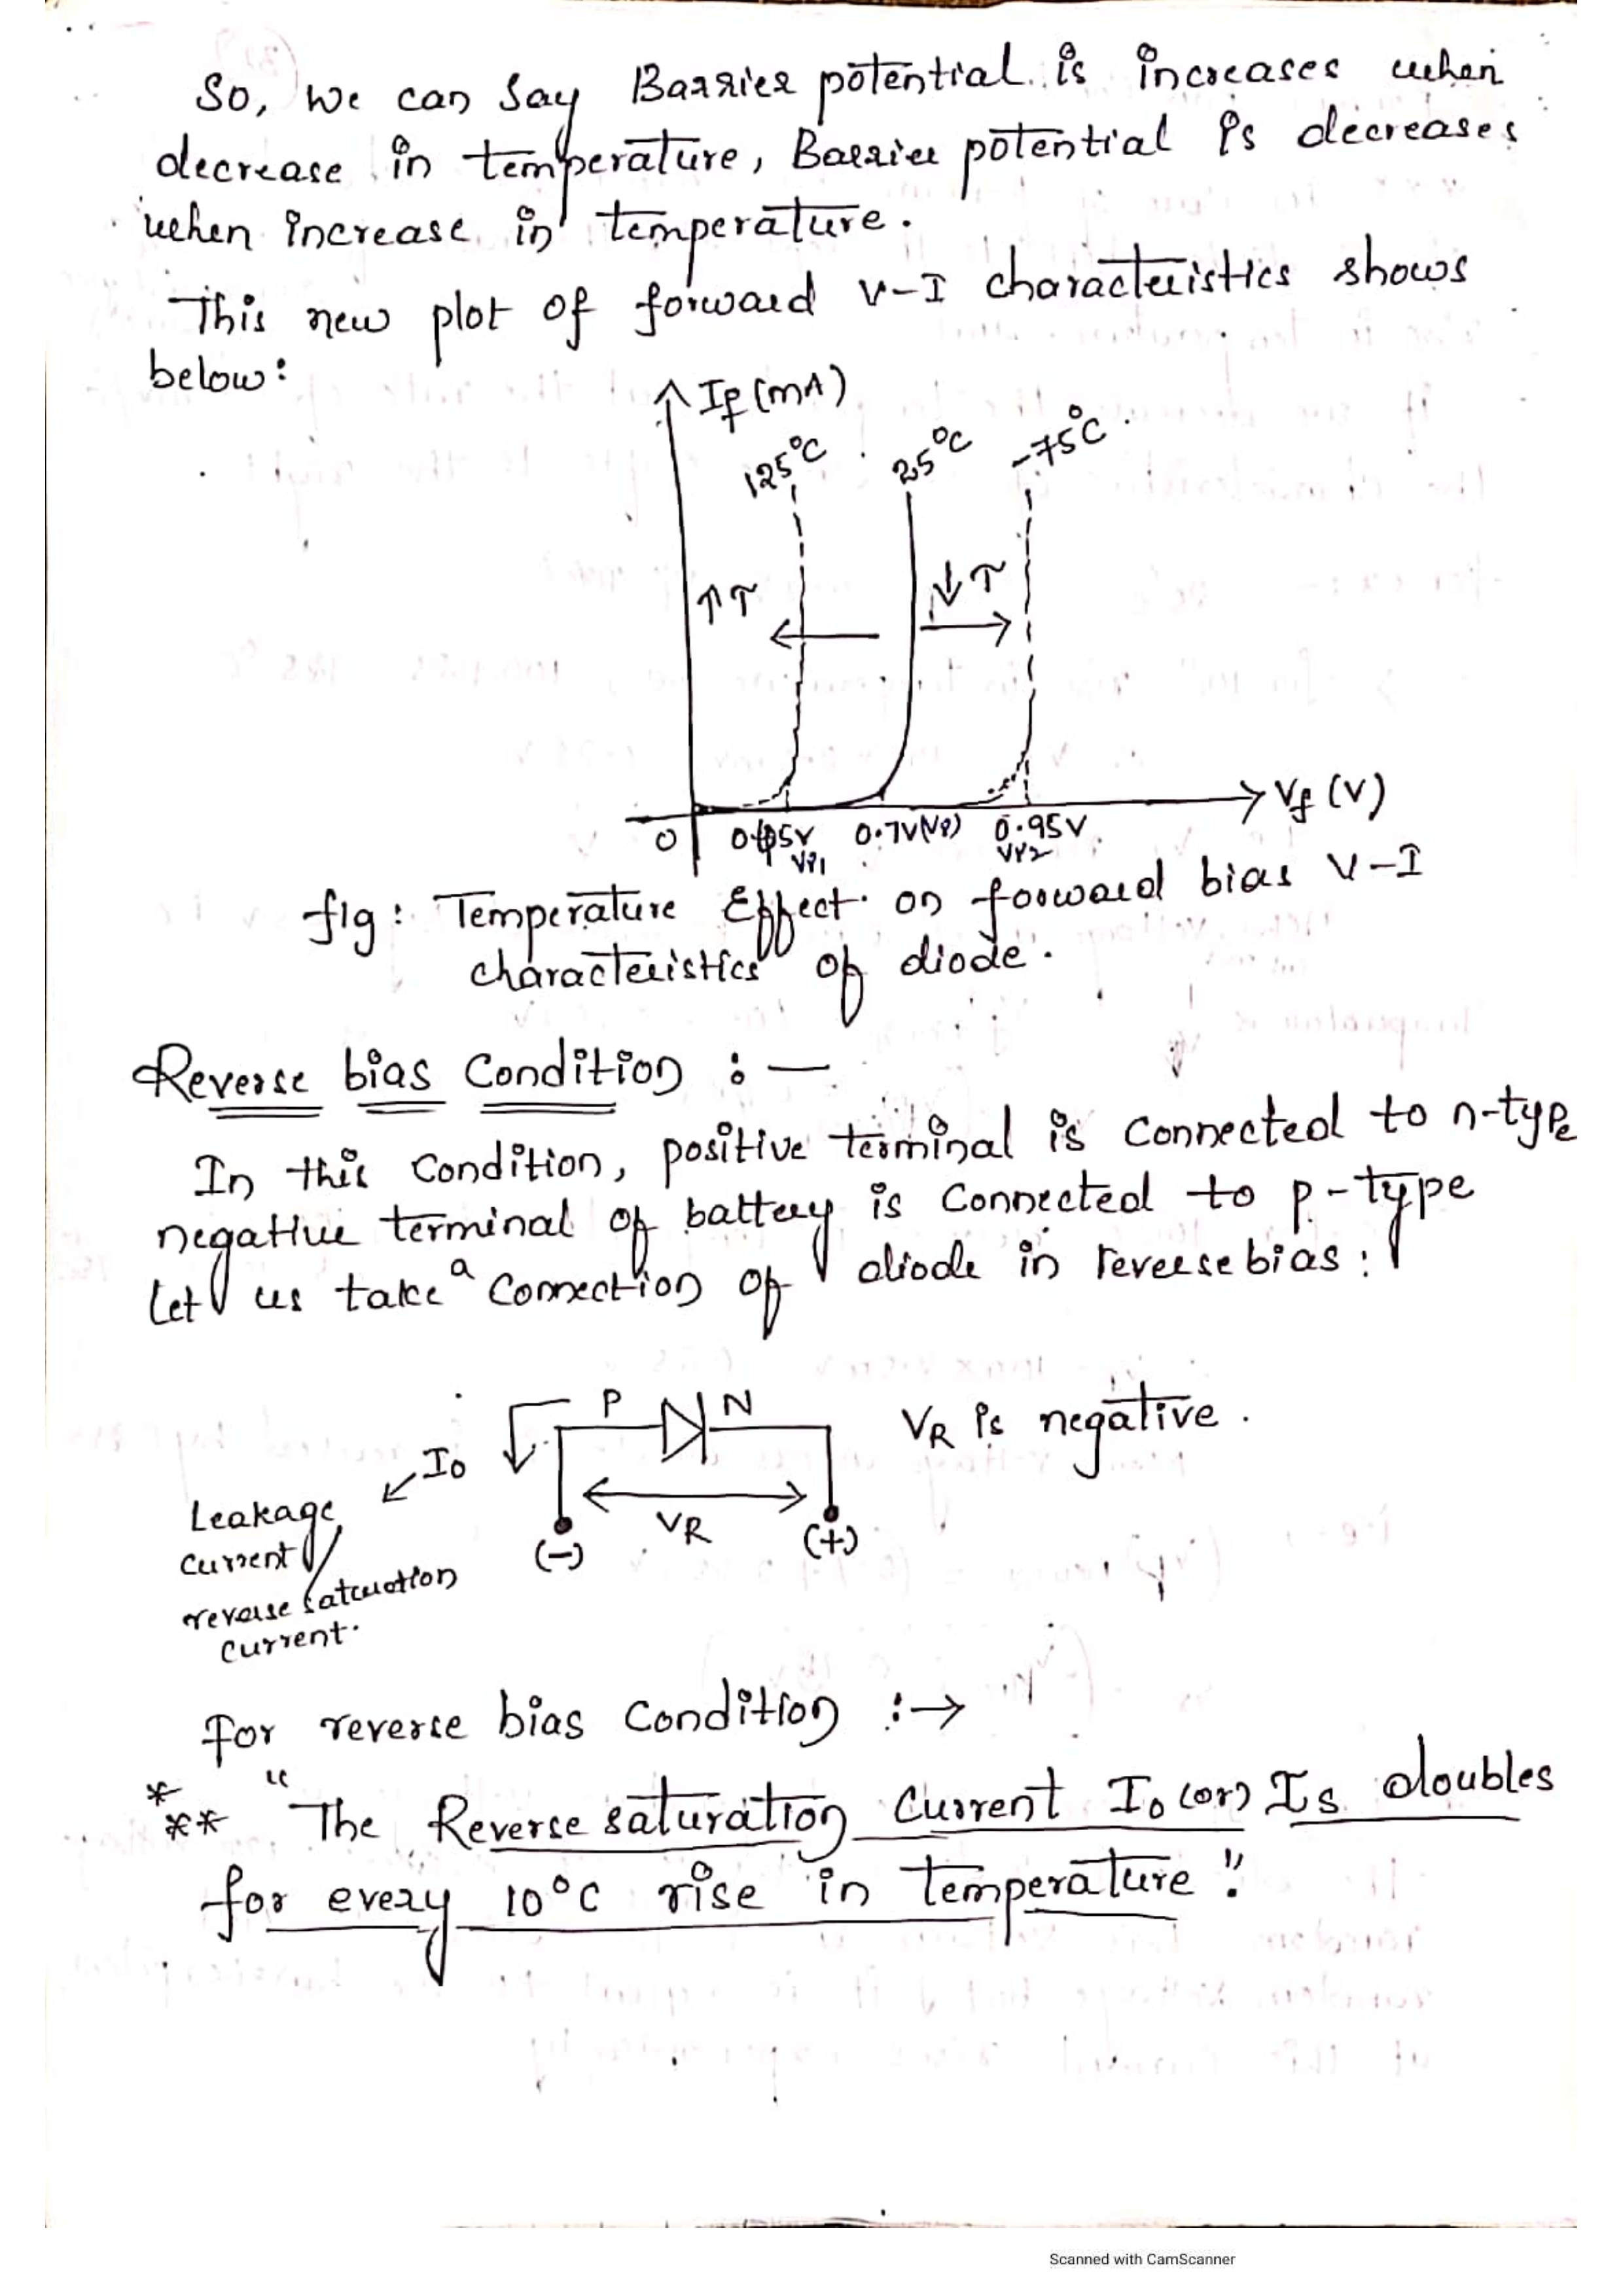 So, we can say Barrier potential is increases when
decrease in temperature, Barrier potential is decreases
when increase in temperature.
This new plot of forward V-I characteristics shows
below:
If (mA)
125°C
25°C
-75°C
↑T
↓T
0
0.7V(Vγ)
0.95V
Vγ1
Vγ2
Vf (V)
fig: Temperature Effect on forward bias V-I
characteristics of diode.
Reverse bias Condition :—
In this condition, positive terminal is connected to n-type
negative terminal of battery is connected to p-type
Let us take a connection of diode in reverse bias:
P
N
VR is negative.
I0
Leakage
current/
reverse saturation
current.
VR
(-)
(+)
for reverse bias condition :→
*** "The Reverse saturation Current I0 (or) Is doubles
for every 10°C rise in Temperature".
Scanned with CamScanner